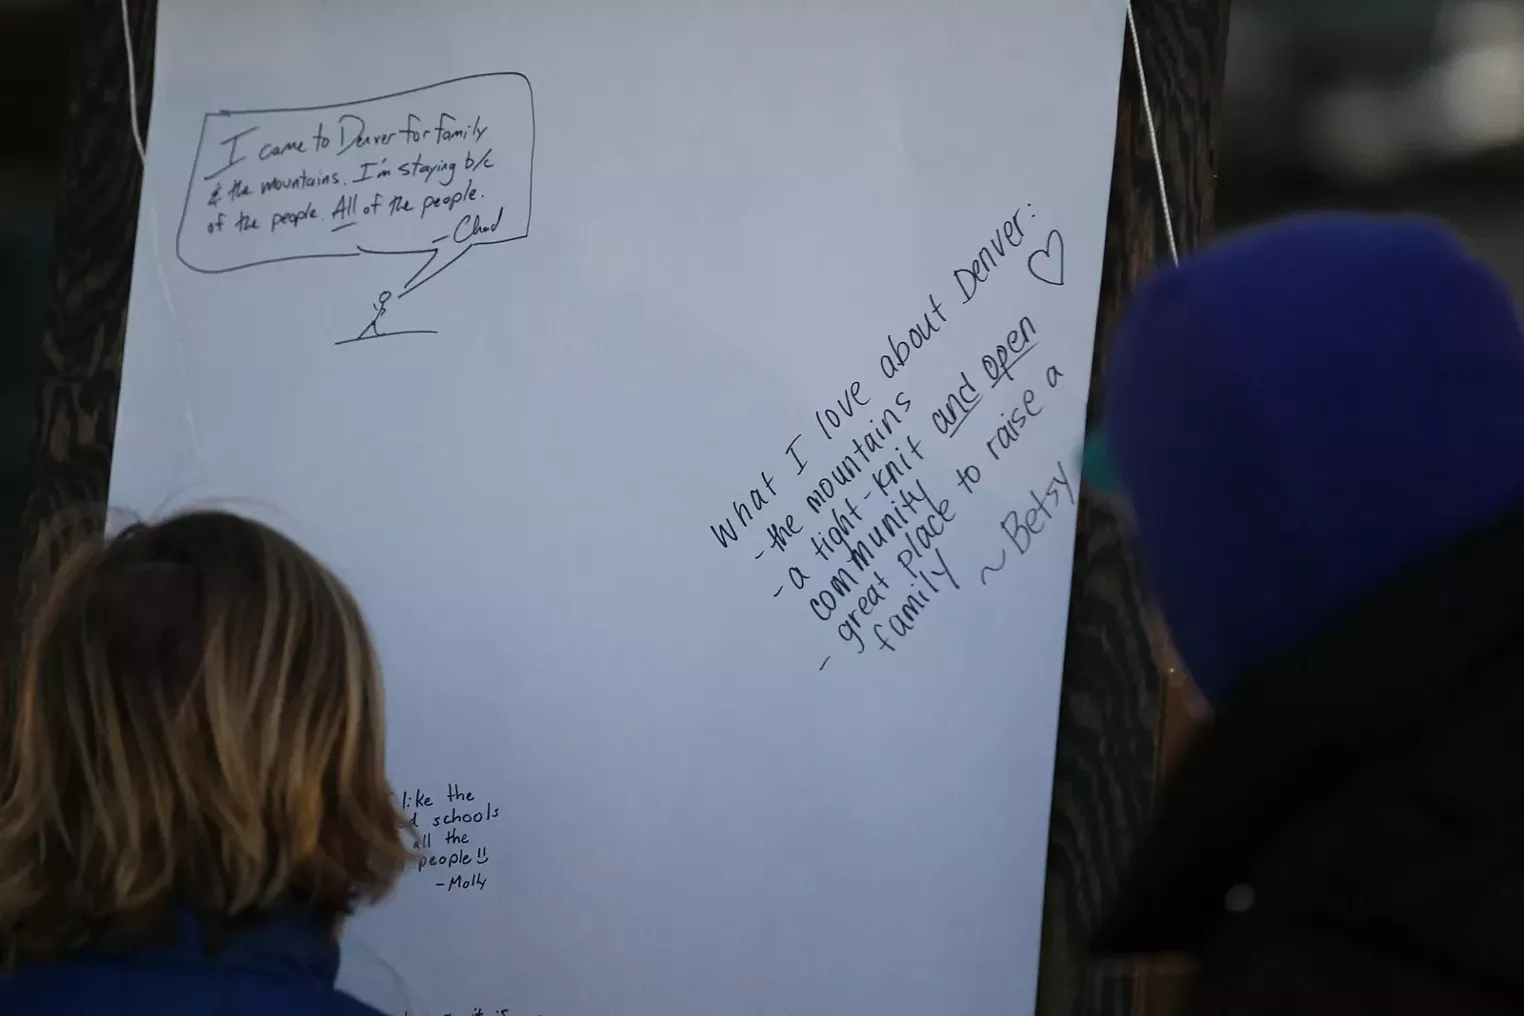 I came to Denver for family
& the mountains. I'm staying b/c
of the people. All of the people.
- Chad
What I love about Denver:
- the mountains
- a tight-knit and open
community
- great place to raise a
family
~ Betsy
like the
schools
all the
people!!
- Molly
it is